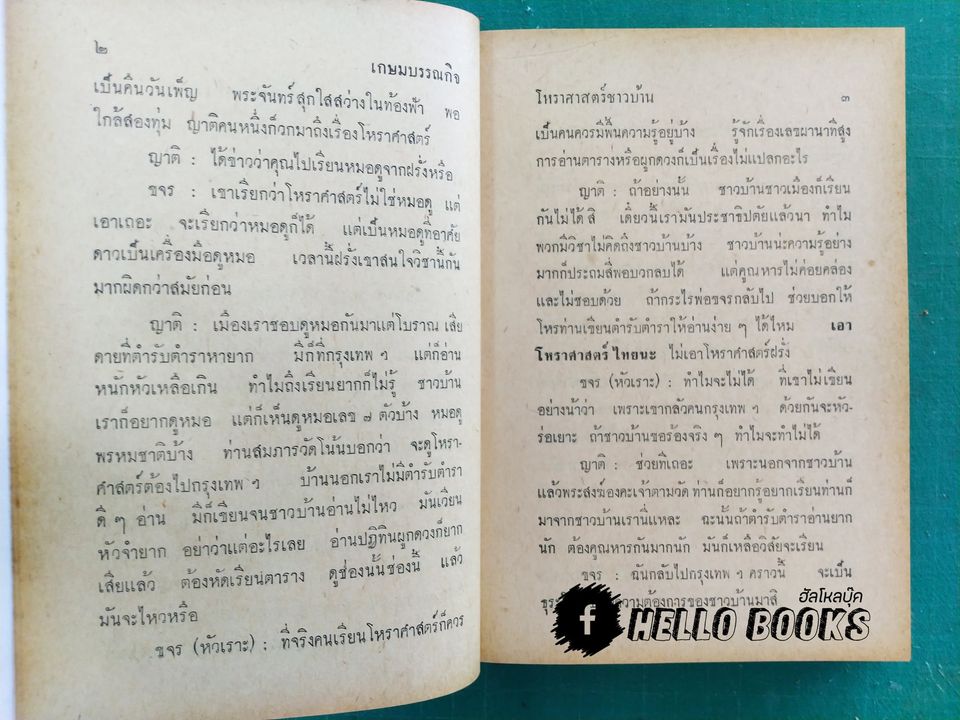 ๒
เกษมบรรณกิจ
เป็นคืนวันเพ็ญ พระจันทร์สุกใสสว่างในท้องฟ้า พอ
ใกล้สองทุ่ม ญาติคนหนึ่งก็วกมาถึงเรื่องโหราศาสตร์
ญาติ : ได้ข่าวว่าคุณไปเรียนหมอดูจากฝรั่งหรือ
ขจร : เขาเรียกว่าโหราศาสตร์ไม่ใช่หมอดู แต่
เอาเถอะ จะเรียกว่าหมอดูก็ได้ แต่เป็นหมอดูที่อาศัย
ดาวเป็นเครื่องมือดูหมอ เวลานี้ฝรั่งเขาสนใจวิชานี้กัน
มากผิดกว่าสมัยก่อน
ญาติ : เมืองเราชอบดูหมอกันมาแต่โบราณ เสีย
ดายที่ตำรับตำราหายาก มีก็ที่กรุงเทพ ฯ แต่ก็อ่าน
หนักหัวเหลือเกิน ทำไมถึงเรียนยากก็ไม่รู้ ชาวบ้าน
เราก็อยากดูหมอ แต่ก็เห็นดูหมอเลข ๗ ตัวบ้าง หมอดู
พรหมชาติบ้าง ท่านสมภารวัดโน้นบอกว่า จะดูโหรา-
ศาสตร์ต้องไปกรุงเทพ ฯ บ้านนอกเราไม่มีตำรับตำรา
ดี ๆ อ่าน มีก็เขียนจนชาวบ้านอ่านไม่ไหว มันเวียน
หัวจำยาก อย่าว่าแต่อะไรเลย อ่านปฏิทินผูกดวงก็ยาก
เสียแล้ว ต้องหัดเรียนตาราง ดูช่องนั้นช่องนี้ แล้ว
มันจะไหวหรือ
ขจร (หัวเราะ) : ที่จริงคนเรียนโหราศาสตร์ก็ควร
โหราศาสตร์ชาวบ้าน
๓
เป็นคนควรมีพื้นความรู้อยู่บ้าง รู้จักเรื่องเลขผานาทีสูง
การอ่านตารางหรือผูกดวงก็เป็นเรื่องไม่แปลกอะไร
ญาติ : ถ้าอย่างนั้น ชาวบ้านชาวเมืองก็เรียน
กันไม่ได้ สิ เดี๋ยวนี้เรามันประชาธิปตัยแล้วนา ทำไม
พวกมีวิชาไม่คิดถึงชาวบ้านบ้าง ชาวบ้านน่ะความรู้อย่าง
มากก็ประถมสี่พอบวกลบได้ แต่คูณหารไม่ค่อยคล่อง
และไม่ชอบด้วย ถ้ากระไรพ่อขจรกลับไป ช่วยบอกให้
โหรท่านเขียนตำรับตำราให้อ่านง่าย ๆ ได้ไหม เอา
โหราศาสตร์ ไทยนะ ไม่เอาโหราศาสตร์ฝรั่ง
ขจร (หัวเราะ) : ทำไมจะไม่ได้ ที่เขาไม่เขียน
อย่างน้าว่า เพราะเขากลัวคนกรุงเทพ ฯ ด้วยกันจะหัว-
ร่อเยาะ ถ้าชาวบ้านขอร้องจริง ๆ ทำไมจะทำไม่ได้
ญาติ : ช่วยทีเถอะ เพราะนอกจากชาวบ้าน
แล้วพระสงฆ์องคะเจ้าตามวัด ท่านก็อยากรู้อยากเรียนท่านก็
มาจากชาวบ้านเรานี่แหละ ฉะนั้นถ้าตำรับตำราอ่านยาก
นัก ต้องคูณหารกันมากนัก มันก็เหลือวิสัยจะเรียน
ขจร : ฉันกลับไปกรุงเทพ ฯ คราวนี้ จะเป็น
ความต้องการของชาวบ้านมาสิ
ฮัลโหลบุ๊ค
f HELLO BOOKS